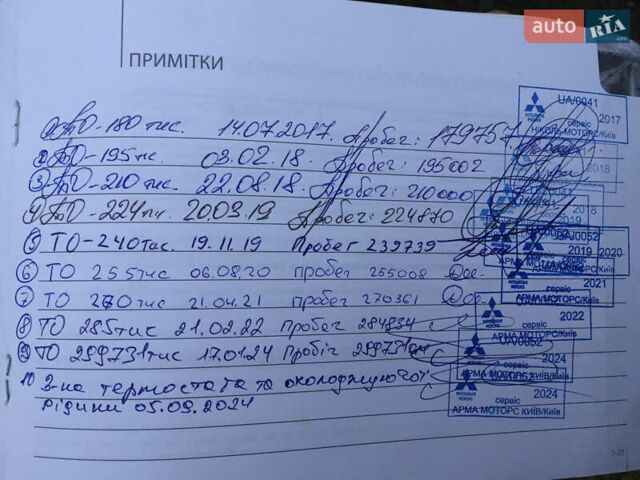 auto RIA.com
ПРИМІТКИ
① ТО-180 тис. 14.07.2017. Пробег: 179757
② ТО-195 тис. 03.02.18. Пробег: 195002
③ ТО-210 тис. 22.08.18. Пробег: 210000
④ ТО-224 тис. 20.03.19 Пробег: 224870
⑤ ТО-240 тис. 19.11.19 Пробег 239739
⑥ ТО 255 тис 06.08.20 пробег 255008
⑦ ТО 270 тис 21.04.21 пробег 270361
⑧ ТО 285 тис 21.02.22 пробег 284834
⑨ ТО 299731 тис 17.01.24 Пробіг 299731
10 З-на термостата та охолоджуючої
рідини 05.09.2024
UA/0041
2017
сервіс
НІКОЛЬ МОТОРС/Київ
2018
2018
2019
UA/0052
2019
2020
АРМА МОТОРС
2021
сервіс
АРМА МОТОРС/Київ
сервіс 2022
UA/0052
2024
сервіс
АРМА МОТОРС КИЇВ/Київ
UA/0052
MITSUBISHI MOTORS
2024
сервіс
АРМА МОТОРС КИЇВ/Київ